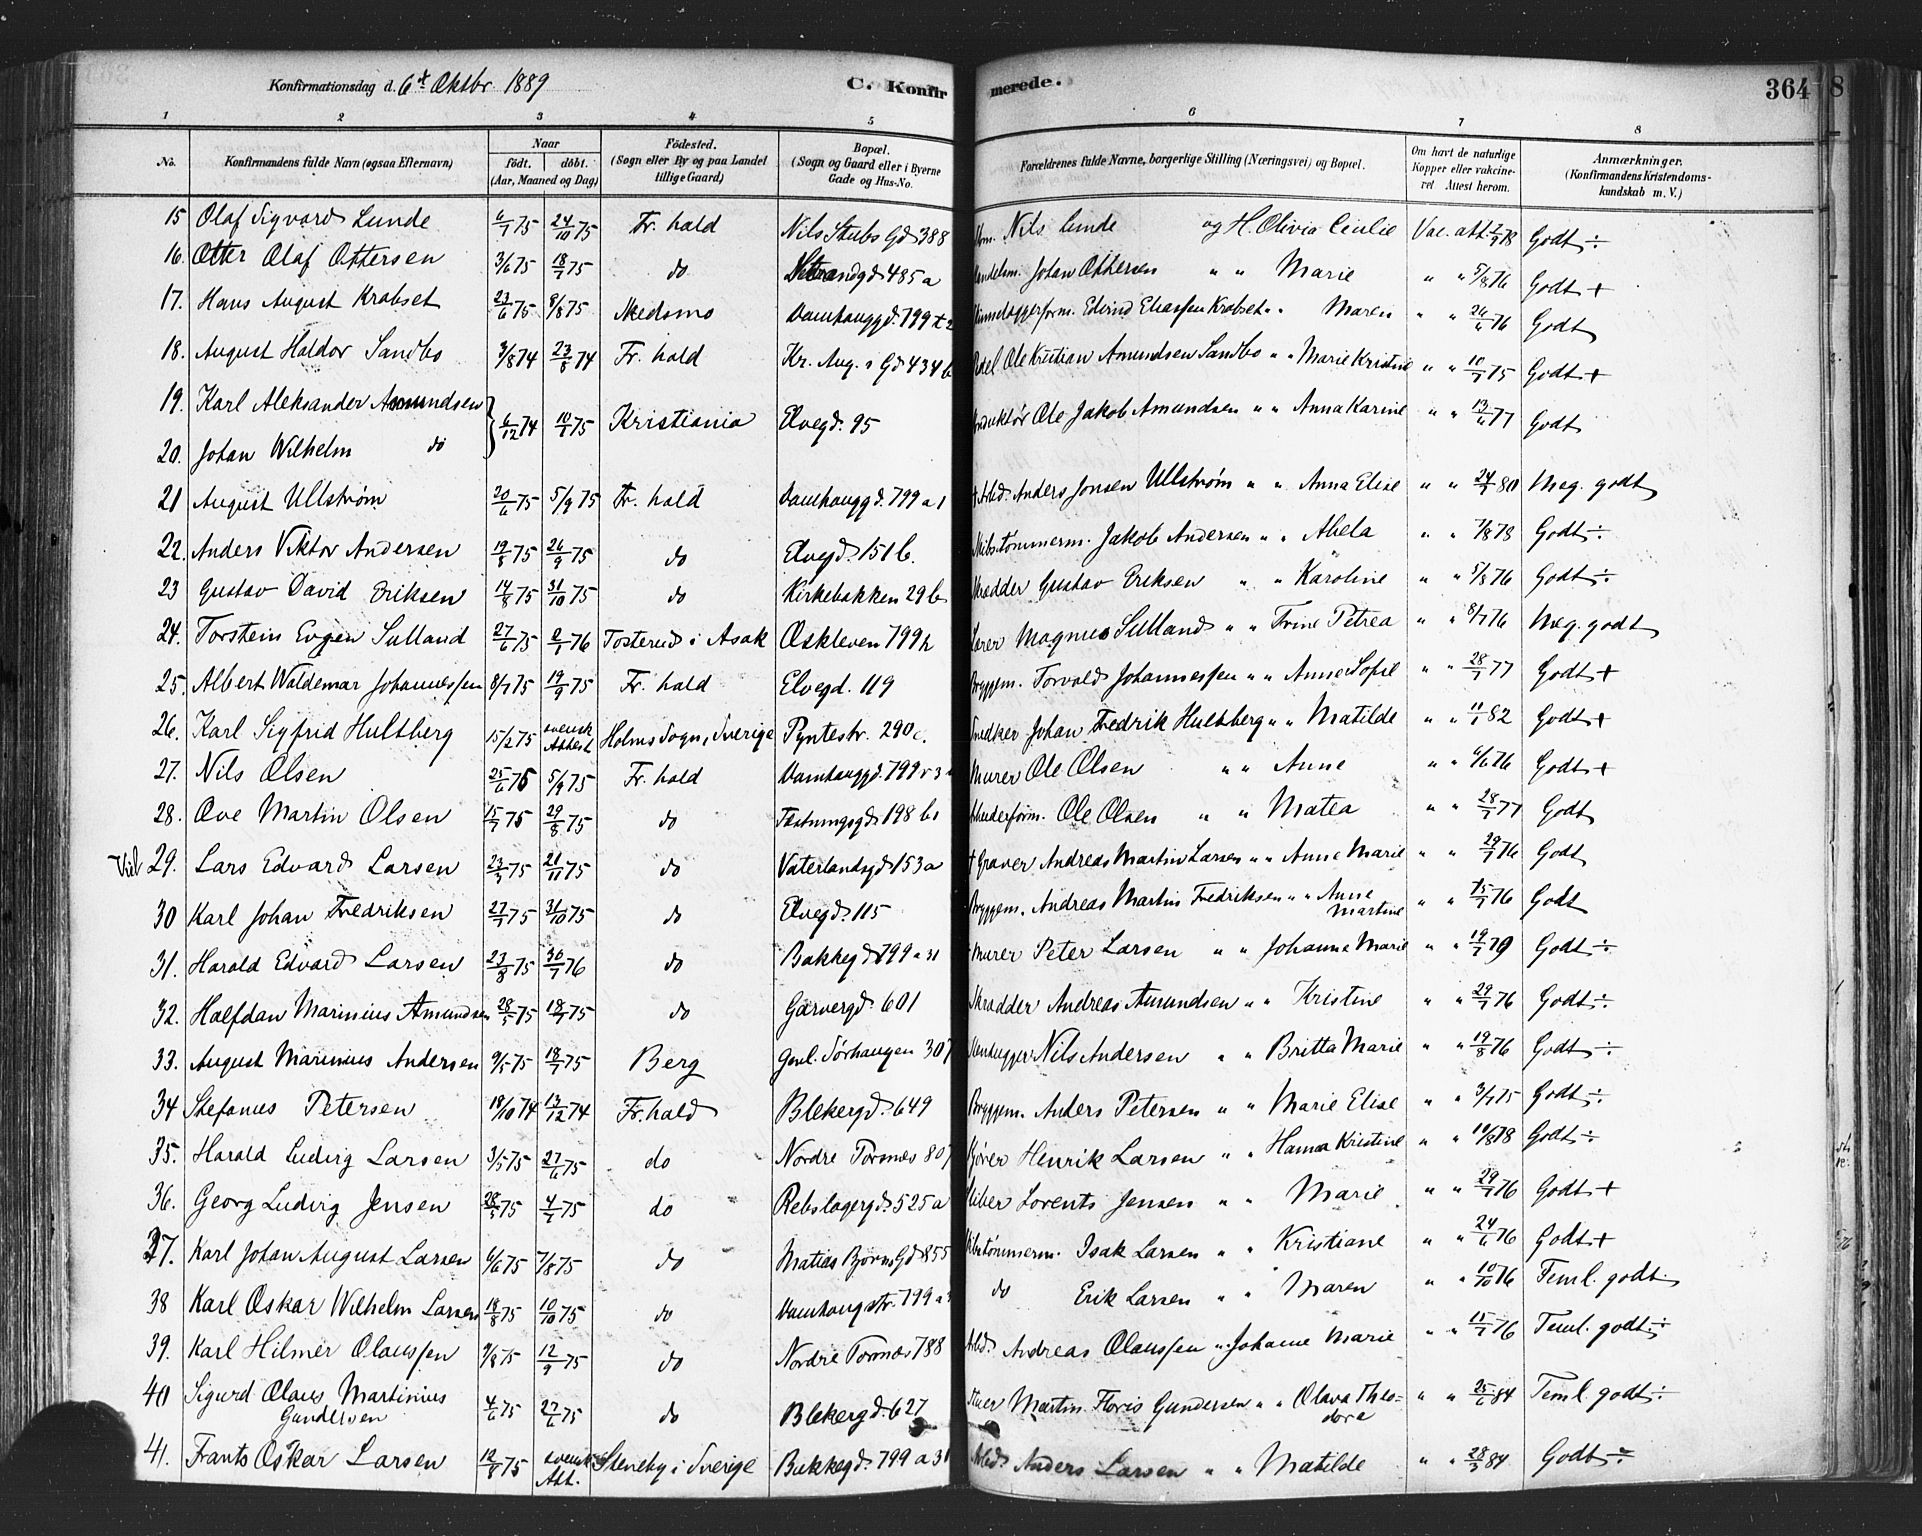 Konfirmationsdag d. 6te Oktbr 1889 C. Konfirmerede. 364
1 2 3 4 5 6 7 8
No. Konfirmandens fulde Navn (ogsaa Efternavn) Naar født. døbt. (Aar, Maaned og Dag) Fødested. (Sogn eller By og paa Landet tillige Gaard) Bopæl. (Sogn og Gaard eller i Byerne Gade og Hus-No. Forældrenes fulde Navne, borgerlige Stilling (Næringsvei) og Bopæl. Om havt de naturlige Kopper eller vakcineret Attest herom. Anmærkninger. (Konfirmandens Kristendomskundskab m. V.)
15 Olaf Sigvard Lunde 6/7 75 24/10 75 Fr. hald Nils Stubs Gd 388 Nils Lunde og H. Olivia Cecilie Vac. att. 2/9 78 Godt ÷
16. Otter Olaf Ottersen 3/6 75 18/7 75 do 485 a Johan Ottersen " " Marie " " 5/8 76 Godt +
17. Hans August Krabset 23/6 75 8/8 75 Nedsmo Damhauggd. 799 Edvind Eliassen Krabset " " Maren " " 26/6 76 Godt
18. August Haldor Sandbo 3/8 74 23/8 74 Fr. hald Kr. Aug. s Gd 434 b Ole Kristian Amundsen Sandbo " " Marie Kristine " " 11/7 75 Godt +
19. Karl Aleksander Amundsen 6/12 74 10/1 75 Kristiania Elvegd. 95 Ole Jakob Amundsen " " Anna Karine " " 13/6 77 Godt
20. Johan Wilhelm do
21 August Ullstrøm 20/6 75 5/9 75 Fr. hald Damhauggd. 799 a 1 † Arbd. Anders Jonsen Ullstrøm " " Anna Elise " " 24/7 80 Meg. godt
22. Anders Viktor Andersen 19/8 75 26/9 75 do Elvegd. 151 b. Skibstømmerm. Jakob Andersen " " Abela " " 7/8 78 Godt ÷
23 Gustav David Eriksen 14/8 75 31/10 75 do Kirkebakken 29 b Skrædder Gustav Eriksen " " Karoline " " 5/8 76 Godt ÷
24. Torstein Evgen Sulland 27/6 75 2/1 76 Tosterud i Asak Øskleven 799 h Lærer Magnus Sulland " " Trine Petrea " " 8/7 76 Meg. godt
25. Albert Waldemar Johannessen 8/7 75 19/9 75 Fr. hald Elvegd. 119 Bryggem. Torvald Johannessen " " Anne Sofie " " 28/7 77 Godt +
26. Karl Sigfrid Hultberg 15/2 75 svensk Attest Holms Sogn, Sverige Pyntestr. 290 c. Snedker Johan Fredrik Hultberg " " Matilde " " 11/1 82 Godt +
27. Nils Olsen 25/6 75 5/9 75 Fr. hald Damhauggd. 799 Murer Ole Olsen " " Anne " " 6/6 76 Godt +
28. Ove Martin Olsen 15/7 75 29/8 75 do Fæstningsgd 198 b 1 Ole Olsen " " Matea " " 28/7 77 Godt
29. Lars Edvard Larsen 23/3 75 21/11 75 do Vaterlandsgd 153 a † Graver Andreas Martin Larsen " " Anne Marie " " 29/7 76 Godt
30 Karl Johan Fredriksen 27/7 75 31/10 75 do Elvegd. 115 Bryggem. Andreas Martin Fredriksen " " Anne Martine " " 15/7 76 Godt
31. Harald Edvard Larsen 23/8 75 30/7 76 do Bakkegd. 799 a 31 Murer Peter Larsen " " Johanne Marie " " 19/7 79 Godt ÷
32. Halfdan Marinius Amundsen 28/5 75 18/7 75 do Garvergd. 601 Skrædder Andreas Amundsen " " Kristine " " 29/7 76 Godt ÷
33. August Marinius Andersen 9/5 75 18/7 75 Berg Gml. Sørhaugen 307 Stenhugger Nils Andersen " " Britta Marie " " 19/8 76 Godt ÷
34 Stefanus Petersen 18/10 74 13/12 74 Fr. hald Blekergd. 649 Bryggem. Anders Petersen " " Marie Elise " " 3/7 75 Godt ÷
35. Harald Ludvig Larsen 3/5 75 27/6 75 do Nordre Torsnæs 807 Kjører Henrik Larsen " " Hanna Kristine " " 11/8 78 Godt ÷
36. Georg Ludvig Jensen 28/5 75 4/7 75 do Rebslagergd. 525 a Lorents Jensen " " Marie " " 29/7 76 Godt +
37. Karl Johan August Larsen 6/6 75 7/8 75 do Matias Bjørns Gd 855 Skibstømmerm. Isak Larsen " " Kristiane " " 24/6 76 Godt +
38 Karl Oskar Wilhelm Larsen 18/8 75 10/10 75 do Damhaugstr. 799 a do Erik Larsen " " Maren " " 10/10 76 Teml. godt
39. Karl Hilmer Olaussen 9/8 75 12/9 75 do Nordre Torsnæs 788 Arbd. Andreas Olaussen " " Johanne Marie " " 15/7 76 Teml. godt ÷
40 Sigurd Olaus Martinius Gundersen 4/6 75 27/6 75 do Blekergd. 627 Martin Floris Gundersen " " Olava Theodora " " 25/6 84 Teml. godt ÷
41. Frants Oskar Larsen 12/8 75 svensk Att. Steneby i Sverige Bakkegd. 799 a 31 Arbd. Anders Larsen " " Matilde " " 28/3 84 Godt ÷